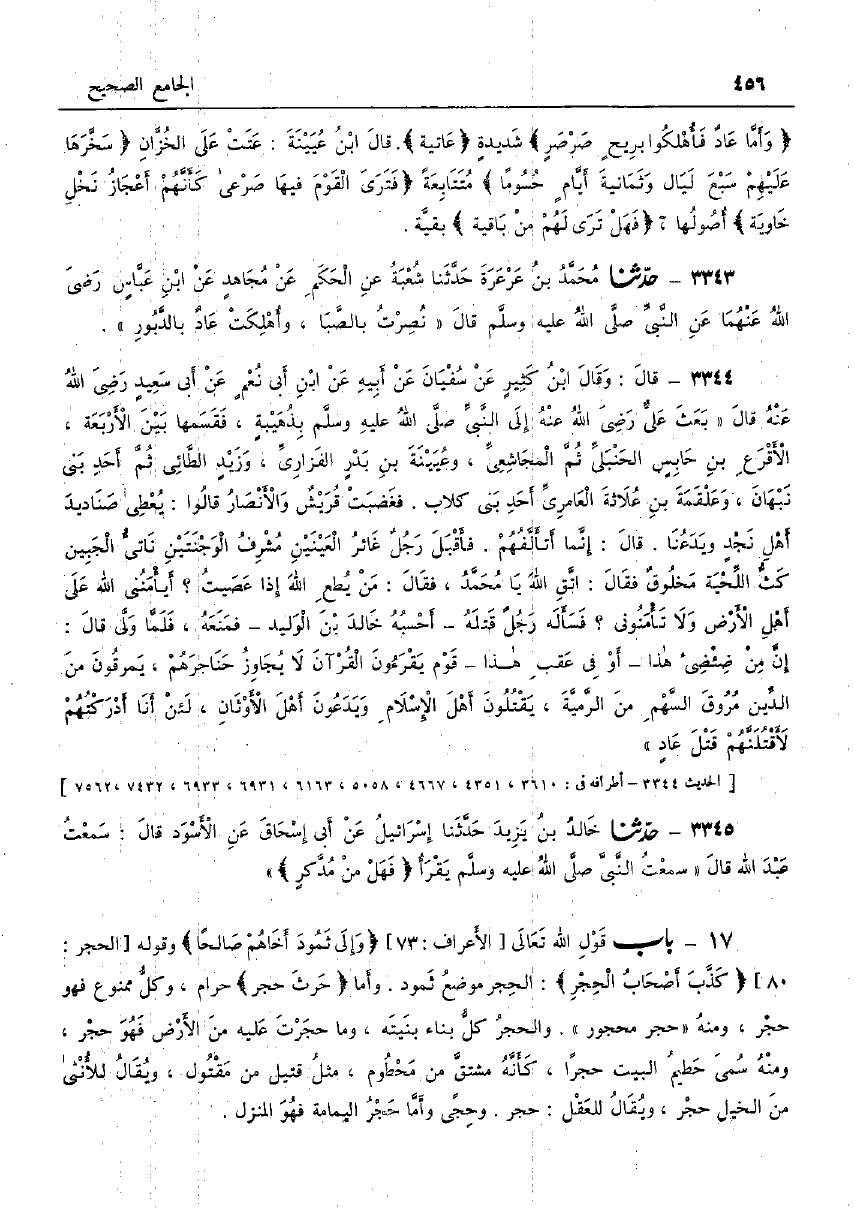 ٤٥٦
الجامع الصحيح
﴿ وَأَمَّا عَادٌ فَأُهْلِكُوا بِرِيحٍ صَرْصَرٍ ﴾ شَدِيدةٍ ﴿ عَاتية ﴾. قالَ ابْنُ عُيَيْنَةَ : عَتَتْ عَلَى الخُزَّانِ ﴿ سَخَّرَهَا
عَلَيْهِمْ سَبْعَ لَيَال وَثَمانيةَ أَيَّامٍ حُسُومًا ﴾ مُتَتَابعَةً ﴿ فَتَرَى القَوْمَ فيها صَرْعىٰ كَأَنَّهُمْ أَعْجَازُ نَخْلٍ
خاوِيَة ﴾ أُصُولُها ﴿ فَهَلْ تَرَى لَهُمْ مِنْ بَاقية ﴾ بقيَّة .
٣٣٤٣ – حدّثنا مُحَمَّدُ بنُ عَرْعَرَةَ حَدَّثَنا شُعْبَةُ عنِ الْحَكَمِ عَنْ مُجَاهدٍ عَنْ ابْنِ عَبَّاسٍ رَضىَ
اللهُ عَنْهُمَا عَنِ النَّبىِّ صلَّى اللهُ عليه وسلَّم قالَ « نُصِرْتُ بالصَّبَا ، وأُهْلِكَتْ عَادٌ بالدَّبُورِ » .
٣٣٤٤ – قالَ : وَقَالَ ابْنُ كَثِيرٍ عَنْ سُفْيَانَ عَنْ أَبيهِ عَنْ ابْنِ أَبى نُعْمٍ عَنْ أَبى سَعِيدٍ رَضِىَ اللهُ
عَنْهُ قالَ « بَعَثَ عَلىٌّ رَضِىَ اللهُ عنْهُ إلَى النَّبىِّ صلَّى اللهُ عليهِ وسلَّم بِذُهَيْبةٍ ، فَقَسَمها بَيْنَ الْأَرْبَعَة ،
الْأَقْرَعِ بنِ حَابِسٍ الحَنْبَلىِّ ثُمَّ الْمجَاشِعىِّ ، وعُيَيْنَةَ بنِ بَدْرٍ الفَزارىِّ ، وَزَيْدٍ الطَّائِى ثُمَّ أَحَدِ بَنى
نَبْهَانَ ، وَعَلْقَمَةَ بنِ عُلَاثَةَ العَامرىِّ أَحَدِ بَنى كلاب . فغَضبَتْ قُرَيْشٌ وَالْأَنْصَارُ قالُوا : يُعْطِى صَناديدَ
أَهْلِ نَجْدٍ ويَدَعُنَا . قالَ : إنَّما أَتأَلَّفُهُمْ . فأَقْبَلَ رَجُلٌ غَائرُ العَيْنَيْنِ مُشْرِفُ الوَجْنَتَيْنِ نَاتىُّ الْجَبِينِ
كَثُّ اللِّحْيَة مَحْلُوقٌ فقالَ : اتَّقِ اللهَ يَا مُحَمَّدُ ، فقَالَ : مَنْ يُطعِ اللهَ إذَا عَصَيتُ ؟ أَيأْمَنُنى الله عَلَى
أَهْلِ الْأَرْضِ وَلَا تَأْمَنُونى ؟ فَسَأَلَه رَجُلٌ قَتلَهُ – أَحْسِبُهُ خَالدَ بْنَ الْوَليد – فمَنَعَهُ ، فَلَمَّا وَلَّى قالَ :
إنَّ مِنْ ضِئْضِئِ هٰذا – أَوْ فى عَقبِ هٰذا – قَوْم يَقْرَءُونَ القُرْآنَ لَا يُجَاوِزُ حَنَاجِرَهُمْ ، يَمرقُونَ منَ
الدِّين مُرُوقَ السَّهْمِ منَ الرَّميَّة ، يَقْتُلُونَ أَهْلَ الْإسْلَامِ وَيَدَعُونَ أَهْلَ الأَوْثَانِ ، لَئنْ أَنَا أَدْرَكتُهُمْ
لَأَقْتُلَنَّهُمْ قَتْلَ عَادٍ »
[ الحديث ٣٣٤٤ – أطرافه فى : ٣٦١٠ ، ٤٣٥١ ، ٤٦٦٧ ، ٥٠٥٨ ، ٦١٦٣ ، ٦٩٣١ ، ٦٩٣٣ ، ٧٤٣٢ ، ٧٥٦٢ ]
٣٣٤٥ – حدّثنا خَالدُ بنُ يَزِيدَ حَدَّثَنا إسْرَائيلُ عَنْ أَبى إسْحَاقَ عَنِ الْأَسْوَدِ قالَ : سَمعْتُ
عَبْدَ الله قالَ « سمعْتُ النَّبىَّ صلَّى اللهُ عليه وسلَّم يَقْرَأُ ﴿ فَهَلْ مِنْ مُدَّكرٍ ﴾ »
١٧ – باب قَوْلِ الله تَعَالَى [ الأعراف : ٧٣ ] ﴿ وَإِلَى ثَمُودَ أَخَاهُمْ صَالحًا ﴾ وقوله [ الحجر :
٨٠ ] ﴿ كَذَّبَ أَصْحَابُ الْحِجْرِ ﴾ : الحِجر موضعُ ثمود . وأما ﴿ حَرثَ حجر ﴾ حرام ، وكلُّ ممنوع فهو
حجْر ، ومنهُ « حجر محجور » . والحجرُ كلُّ بناء بنيتَه ، وما حجَرْتَ عَليه منَ الأَرْض فَهُوَ حجْر ،
ومنْهُ سُمىَ حَطيمُ البيت حجرًا ، كَأَنَّهُ مشتقٌّ من مَحْطُوم ، مثلُ قتيل من مَقْتُول ، ويُقَالُ للأُنْثىٰ
منَ الخيل حجْر ، ويُقَالُ للعَقْل : حجر . وحجًى وأمَّا حَجْرُ اليمامة فهُوَ المنزل .